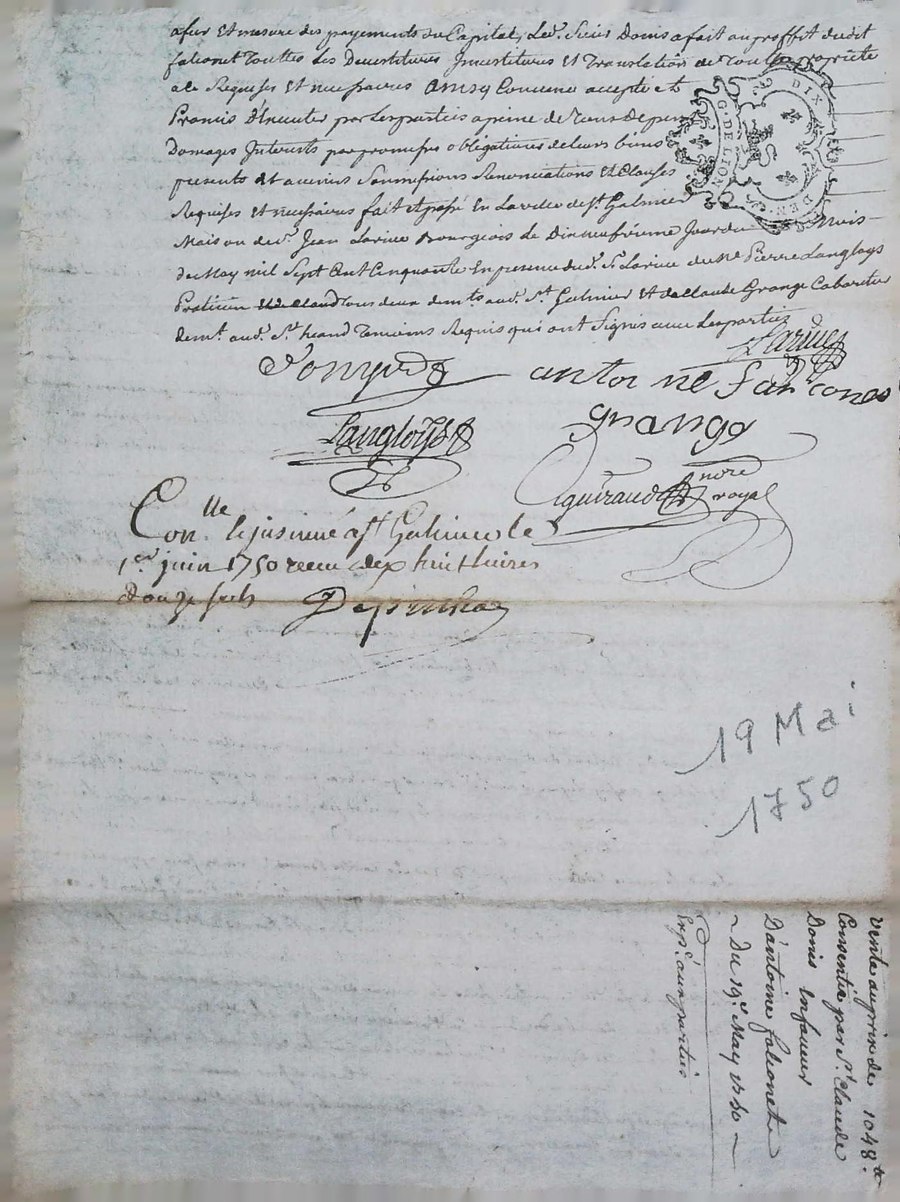 afur Et mesure des payements du Capital, Led. Sieur Donis a fait au proffit dudit
falconet Touttes Les Devestitures Jnvestitures Et Translation de Toutte propriété
a Ce Requises Et necessaires Ainsy Convenu accepté et
Promis d'Executer par Les parties a peine de Tous Depens
Domages Jnterests par promesses obligations de leurs biens
presents Et avenirs Soumissions Renonciations Et Clauses
Requises Et necessaires fait et passé En La ville de St. Galmier
Maison de Sr. Jean Larive Bourgeois Le Dixneufvieme Jour du Mois
de May mil Sept Cent Cinquante En presence dud. Sr. Larive du Me Pierre Langloys
Praticien tous deux demts. aud. St. Galmier Et de Claude Grange Cabaretier
demt. aud. St. Temoins Requis qui ont Signés avec Les parties
Larive
antoine falconet
Langloys
grange
guiraud nore royal
Conlle a St Galmier le
1er juin 1750 receu dix huit livres
douze sols
19 Mai
1750
Vente au prix de 1048 tt
Consentie par Sr. Claude
Donis En faveur
D'antoine falconet
~ Du 19e. May 1750 ~
Expe. aux parties
G. DE LION
DIX DEN.